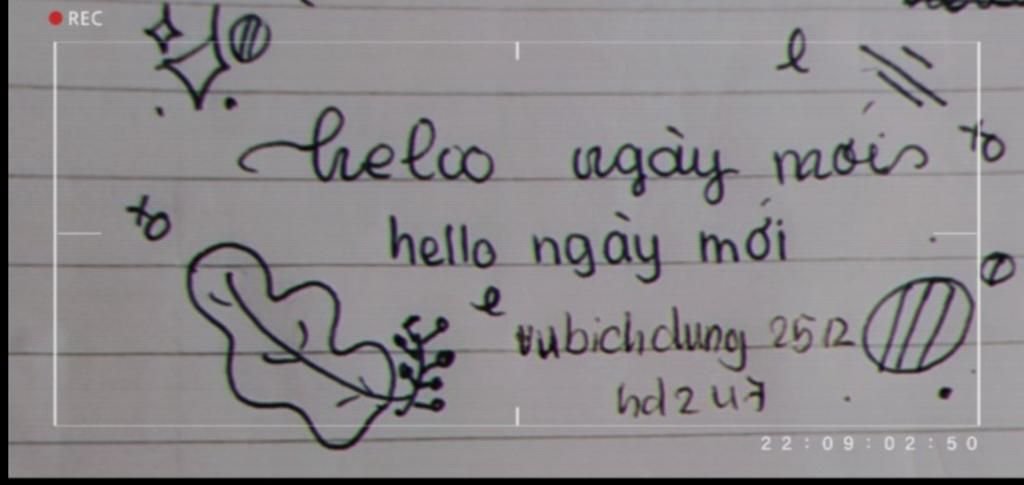 REC
heloo ngày mới
hello ngày mới
vubichdung 2512
hd247
22:09:02:50